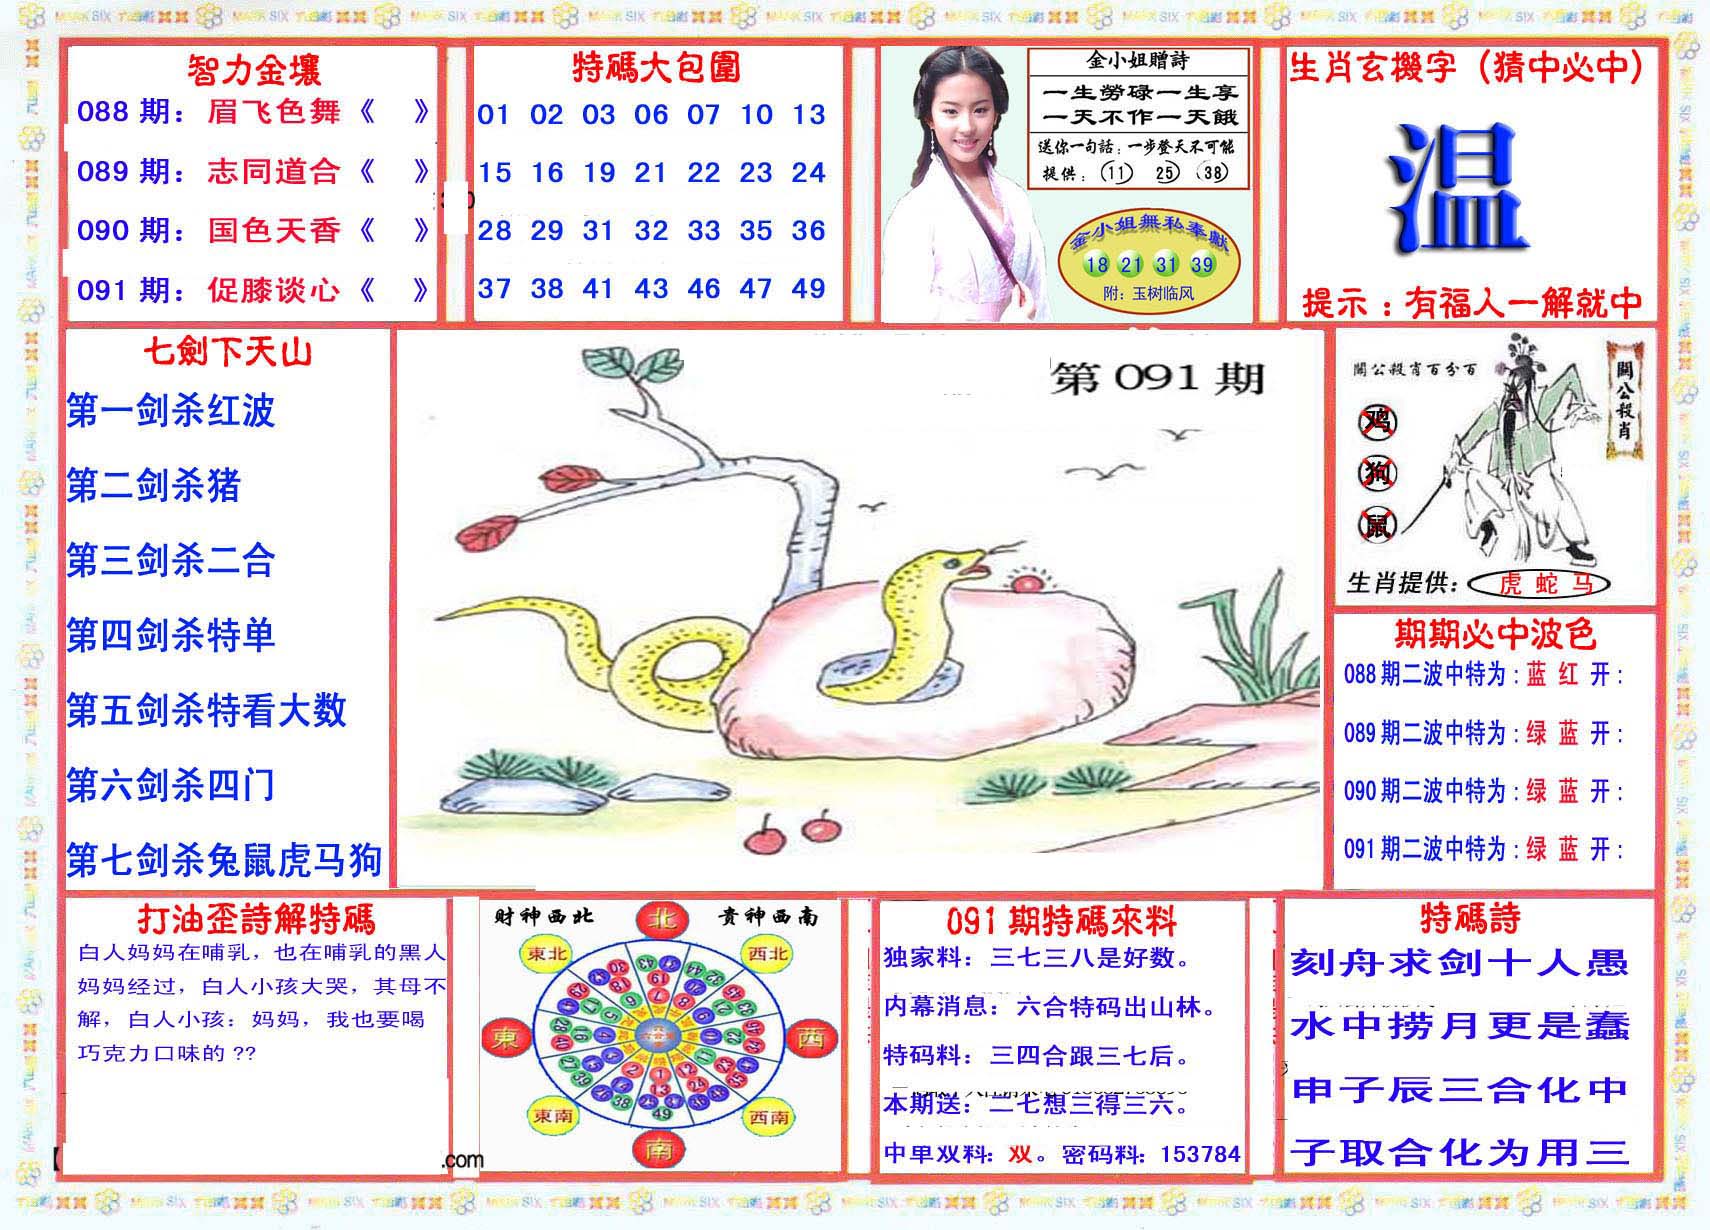 智力金壤
088 期：眉飞色舞《 》
089 期：志同道合《 》
090 期：国色天香《 》
091 期：促膝谈心《 》
特碼大包圍
01 02 03 06 07 10 13
15 16 19 21 22 23 24
28 29 31 32 33 35 36
37 38 41 43 46 47 49
金小姐贈詩
一生勞碌一生享
一天不作一天餓
送你一句話：一步登天不可能
提供：11 25 38
金小姐無私奉獻
18 21 31 39
附：玉树临风
生肖玄機字（猜中必中）
温
提示：有福人一解就中
七劍下天山
第一剑杀红波
第二剑杀猪
第三剑杀二合
第四剑杀特单
第五剑杀特看大数
第六剑杀四门
第七剑杀兔鼠虎马狗
第091期
關公殺肖百分百
關公殺肖
鸡
狗
鼠
生肖提供：虎 蛇 马
期期必中波色
088期二波中特为：蓝 红 开：
089期二波中特为：绿 蓝 开：
090期二波中特为：绿 蓝 开：
091期二波中特为：绿 蓝 开：
打油歪詩解特碼
白人妈妈在哺乳，也在哺乳的黑人
妈妈经过，白人小孩大哭，其母不
解，白人小孩：妈妈，我也要喝
巧克力口味的??
.com
財神西北
貴神西南
北
東北
西北
東
西
東南
西南
南
091期特碼來料
独家料：三七三八是好数。
内幕消息：六合特码出山林。
特码料：三四合跟三七后。
本期送：二七想三得三六。
中单双料：双。密码料：153784
特碼詩
刻舟求剑十人愚
水中捞月更是蠢
申子辰三合化中
子取合化为用三